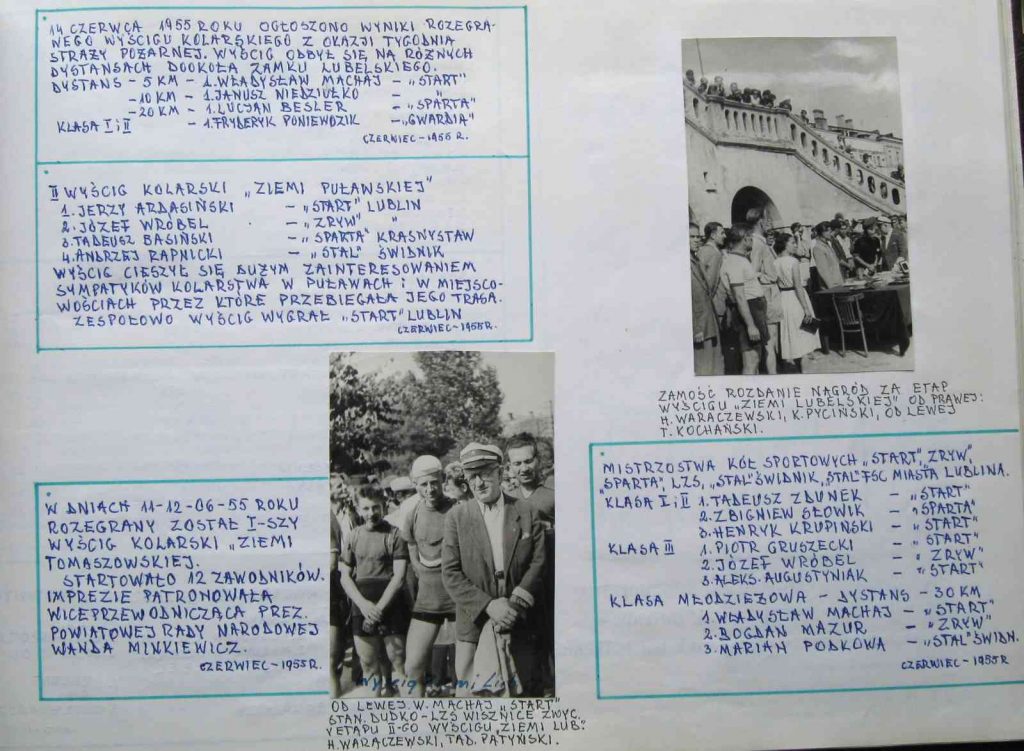 14 CZERWCA 1955 ROKU OGŁOSZONO WYNIKI ROZEGRA-
NEGO WYŚCIGU KOLARSKIEGO Z OKAZJI TYGODNIA
STRAŻY POŻARNEJ. WYŚCIG ODBYŁ SIĘ NA RÓŻNYCH
DYSTANSACH DOOKOŁA ZAMKU LUBELSKIEGO.
DYSTANS - 5 KM - 1. WŁADYSŁAW MACHAJ - „START"
-10 KM - 1. JANUSZ NIEDZIUŁKO - "
-20 KM - 1. LUCJAN BESLER - „SPARTA"
KLASA I i II - 1. FRYDERYK PONIEWOZIK - „GWARDIA"
CZERWIEC - 1955 R.
II WYŚCIG KOLARSKI „ZIEMI PUŁAWSKIEJ"
1. JERZY ARDASIŃSKI - „START" LUBLIN
2. JÓZEF WRÓBEL - „ZRYW" "
3. TADEUSZ BASIŃSKI - „SPARTA" KRASNYSTAW
4. ANDRZEJ RAPNICKI - „STAL" ŚWIDNIK
WYŚCIG CIESZYŁ SIĘ DUŻYM ZAINTERESOWANIEM
SYMPATYKÓW KOLARSTWA W PUŁAWACH i W MIEJSCO-
WOŚCIACH PRZEZ KTÓRE PRZEBIEGAŁA JEGO TRASA.
ZESPOŁOWO WYŚCIG WYGRAŁ „START" LUBLIN
CZERWIEC - 1955 R.
W DNIACH 11-12-06-55 ROKU
ROZEGRANY ZOSTAŁ I-SZY
WYŚCIG KOLARSKI „ZIEMI
TOMASZOWSKIEJ.
STARTOWAŁO 12 ZAWODNIKÓW.
IMPREZIE PATRONOWAŁA
WICEPRZEWODNICZĄCA PREZ.
POWIATOWEJ RADY NARODOWEJ
WANDA MINKIEWICZ.
CZERWIEC - 1955 R.
Wyścig Ziemi Lub
OD LEWEJ. W. MACHAJ „START"
STAN. DUDKO - LZS WISZNICE ZWYC.
V ETAPU II-GO WYŚCIGU „ZIEMI LUB."
H. WARACZEWSKI, TAD. PATYŃSKI.
ZAMOŚĆ ROZDANIE NAGRÓD ZA ETAP
WYŚCIGU „ZIEMI LUBELSKIEJ" OD PRAWEJ:
H. WARACZEWSKI, K. PYCIŃSKI, OD LEWEJ
T. KOCHAŃSKI.
MISTRZOSTWA KÓŁ SPORTOWYCH „START", ZRYW",
„SPARTA", LZS, „STAL" ŚWIDNIK, „STAL" FSC MIASTA LUBLINA.
KLASA I i II 1. TADEUSZ ZDUNEK - „START"
2. ZBIGNIEW SŁOWIK - „SPARTA"
3. HENRYK KRUPIŃSKI - „START"
KLASA III 1. PIOTR GRUSZECKI - „START"
2. JÓZEF WRÓBEL - „ZRYW"
3. ALEKS. AUGUSTYNIAK - „START"
KLASA MŁODZIEŻOWA - DYSTANS - 30 KM
1. WŁADYSŁAW MACHAJ - „START"
2. BOGDAN MAZUR - „ZRYW"
3. MARIAN PODKOWA - „STAL" ŚWIDN.
CZERWIEC - 1955 R